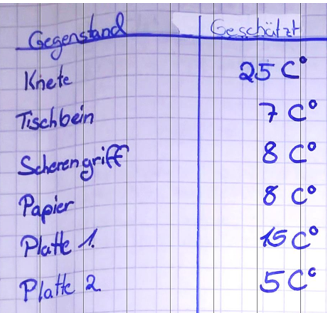 Gegenstand Geschätzt
Knete 25 C°
Tischbein 7 C°
Scherengriff 8 C°
Papier 8 C°
Platte 1. 15 C°
Platte 2 5 C°